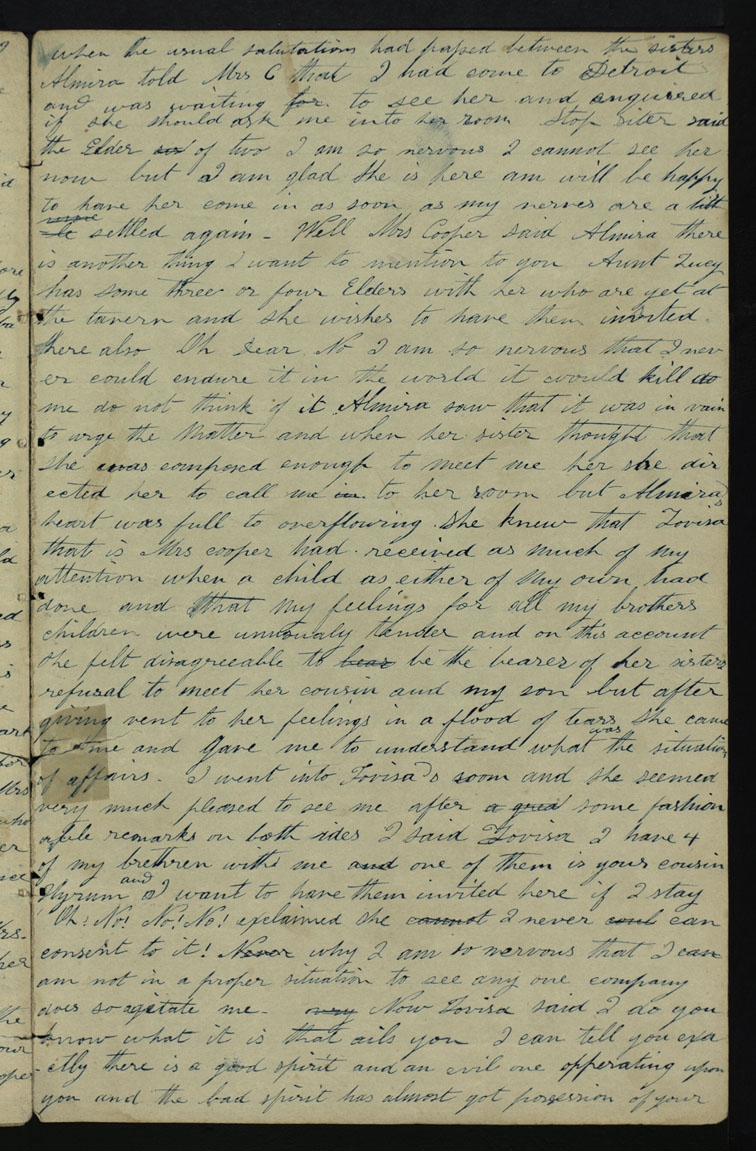 when the usual salutations had passed between the sisters
Almira told Mrs C that I had come to Detroit
and was waiting for to see her and enquired
if she should ask me into her room stop sister said
the Elder sis of two I am so nervous I cannot see her
now but I am glad she is here am will be happy
to have her come in as soon as my nerves are a litt
le more settled again - Well Mrs Cooper said Almira there
is another thing I want to mention to you Aunt Lucy
has some three or four Elders with her who are yet at
the tavern and she wishes to have them invited
here also Oh dear No I am so nervous that I nev
er could endure it in the world it would kill do
me do not think of it Almira saw that it was in vain
to urge the matter and when her sister thought that
she was composed enough to meet me her she dir
ected her to call me in to her room but Almira's
heart was full to overflowing she knew that Lovisa
that is Mrs cooper had received as much of my
attention when a child as either of My own had
done and that my feelings for all my brothers
children were unusualy tender and on this account
she felt disagreeable to bear be the bearer of her sisters
refusal to meet her cousin and my son but after
giving vent to her feelings in a flood of tears she came
to me and gave me to understand what was the situation
of affairs. I went into Lovisa's room and she seemed
very much pleased to see me after a grea some fashion
able remarks on both sides I said Lovisa I have 4
of my brethren with me and one of them is your cousin
Hyrum and I want to have them invited here if I stay
Oh! No! No! No! exclaimed she cannot I never coul can
consent to it! Never why I am so nervous that I can
am not in a proper situation to see any one company
does so agitate me - Now Lovisa said I do you
know what it is that ails you I can tell you exa
ctly there is a good spirit and an evil one opperating upon
you and the bad spirit has almost got possession of your